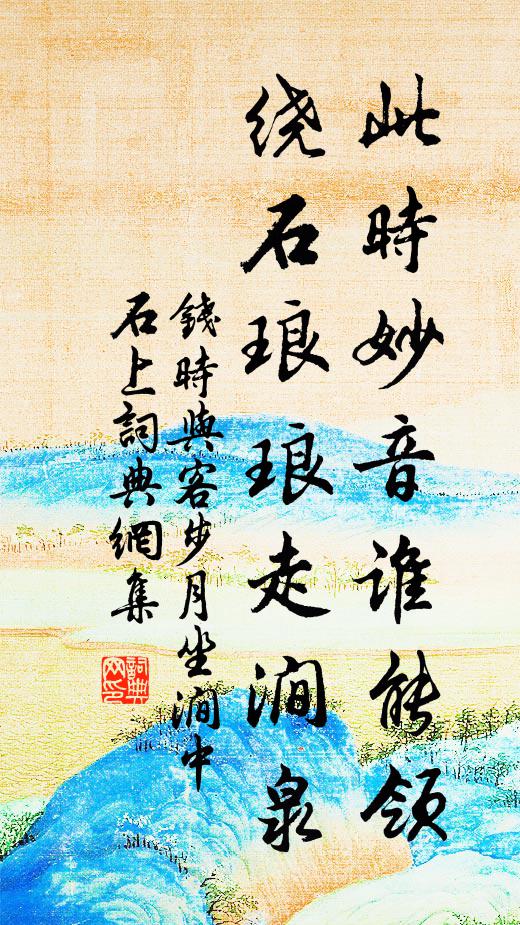 此時妙音谁能领
绕石琅琅走涧泉
錢時與客步月坐澗中
石上詞典網集
詞典
网印